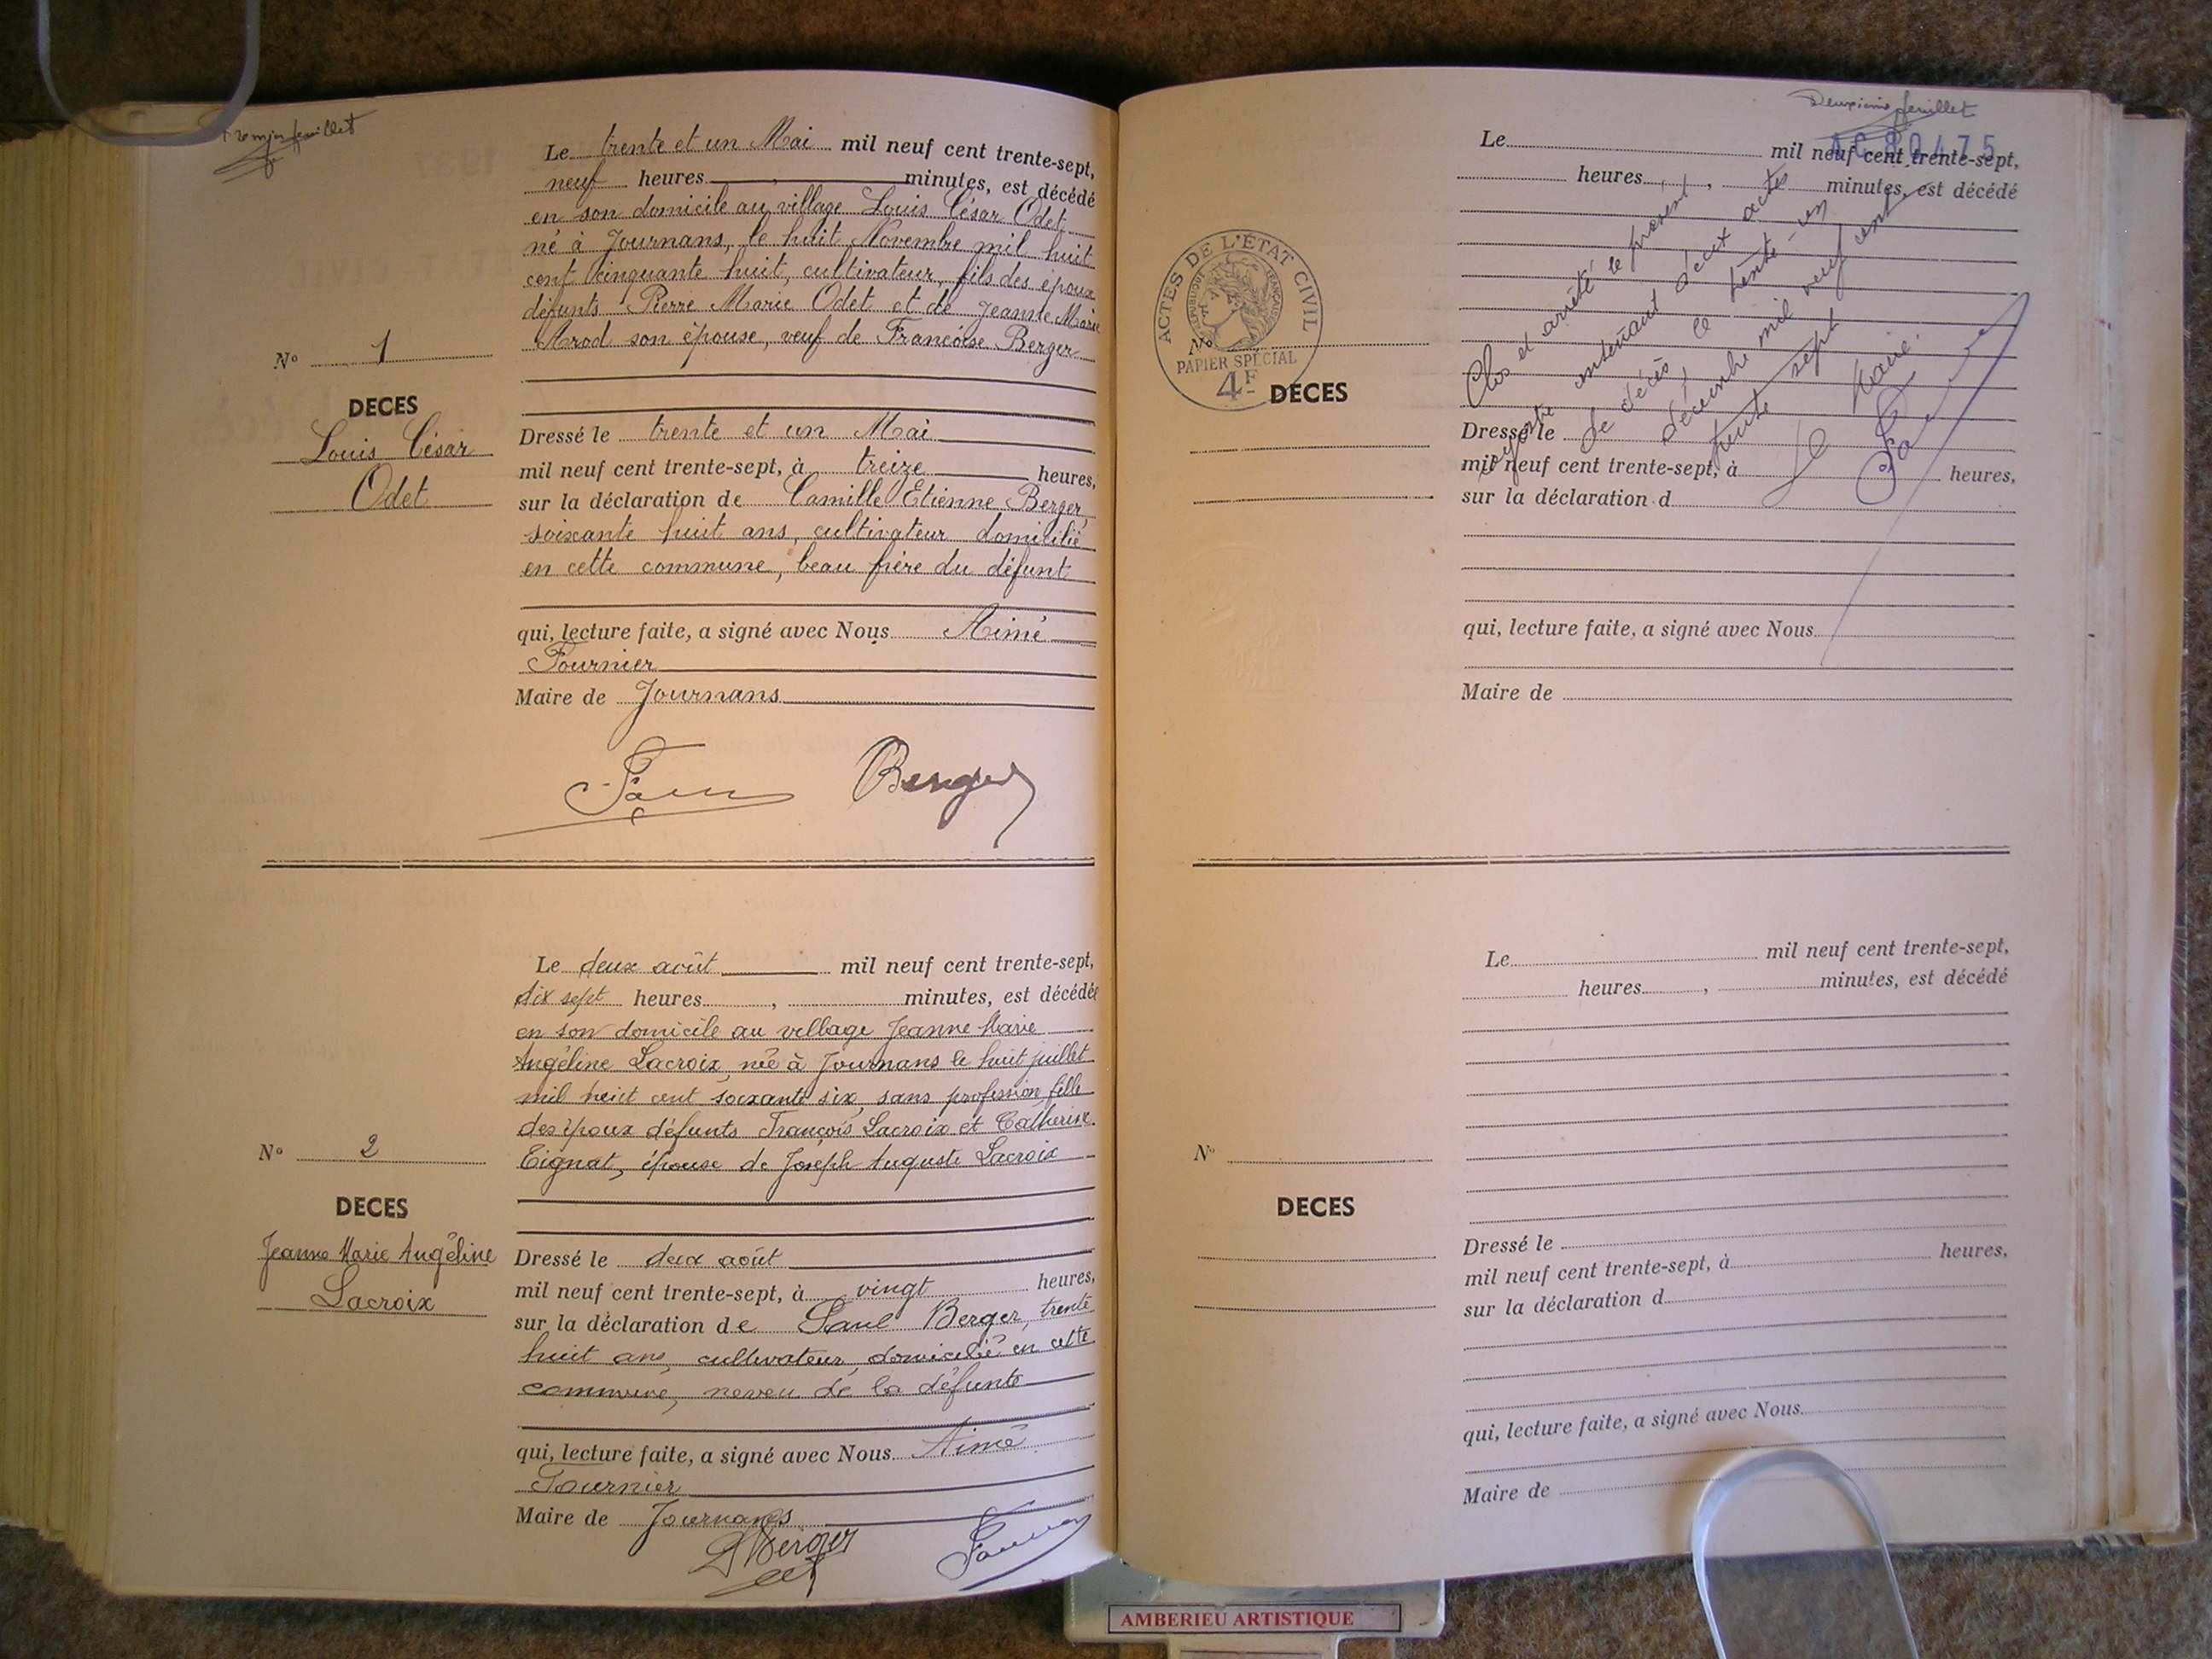 Premier feuillet
Le trente et un Mai mil neuf cent trente-sept,
neuf heures , minutes, est décédé
en son domicile au village Louis César Odet
né à Journans, le huit Novembre mil huit
cent cinquante huit, cultivateur, fils des époux
défunts Pierre Marie Odet et de Jeanne Marie
Arod son épouse, veuf de Françoise Berger
N° 1
DECES
Louis César
Odet
Dressé le trente et un Mai
mil neuf cent trente-sept, à treize heures,
sur la déclaration de Camille Etienne Berger,
soixante huit ans, cultivateur domicilié
en cette commune, beau frère du défunt
qui, lecture faite, a signé avec Nous Aimé
Fournier
Maire de Journans
Berger
Le deux août mil neuf cent trente-sept,
dix sept heures , minutes, est décédée
en son domicile au village Jeanne Marie
Angéline Lacroix, née à Journans le huit juillet
mil huit cent soixante six, sans profession, fille
des époux défunts François Lacroix et Catherine
Tignat, épouse de Joseph Auguste Lacroix
N° 2
DECES
Jeanne Marie Angéline
Lacroix
Dressé le deux août
mil neuf cent trente-sept, à vingt heures,
sur la déclaration de Paul Berger, trente
huit ans, cultivateur, domicilié en cette
commune, neveu de la défunte
qui, lecture faite, a signé avec Nous Aimé
Fournier
Maire de Journans
Berger
Deuxième feuillet
AC80475
Le mil neuf cent trente-sept,
heures , minutes, est décédé
ACTES DE L'ÉTAT CIVIL
RÉPUBLIQUE FRANÇAISE
PAPIER SPÉCIAL
4F
N°
DECES
Clos et arrêté le présent
registre contenant deux actes
de décès, le trente-un
décembre mil neuf cent
trente sept
Le Maire:
Dressé le
mil neuf cent trente-sept, à heures,
sur la déclaration d
qui, lecture faite, a signé avec Nous
Maire de
Le mil neuf cent trente-sept,
heures , minutes, est décédé
N°
DECES
Dressé le
mil neuf cent trente-sept, à heures,
sur la déclaration d
qui, lecture faite, a signé avec Nous
Maire de
AMBERIEU ARTISTIQUE